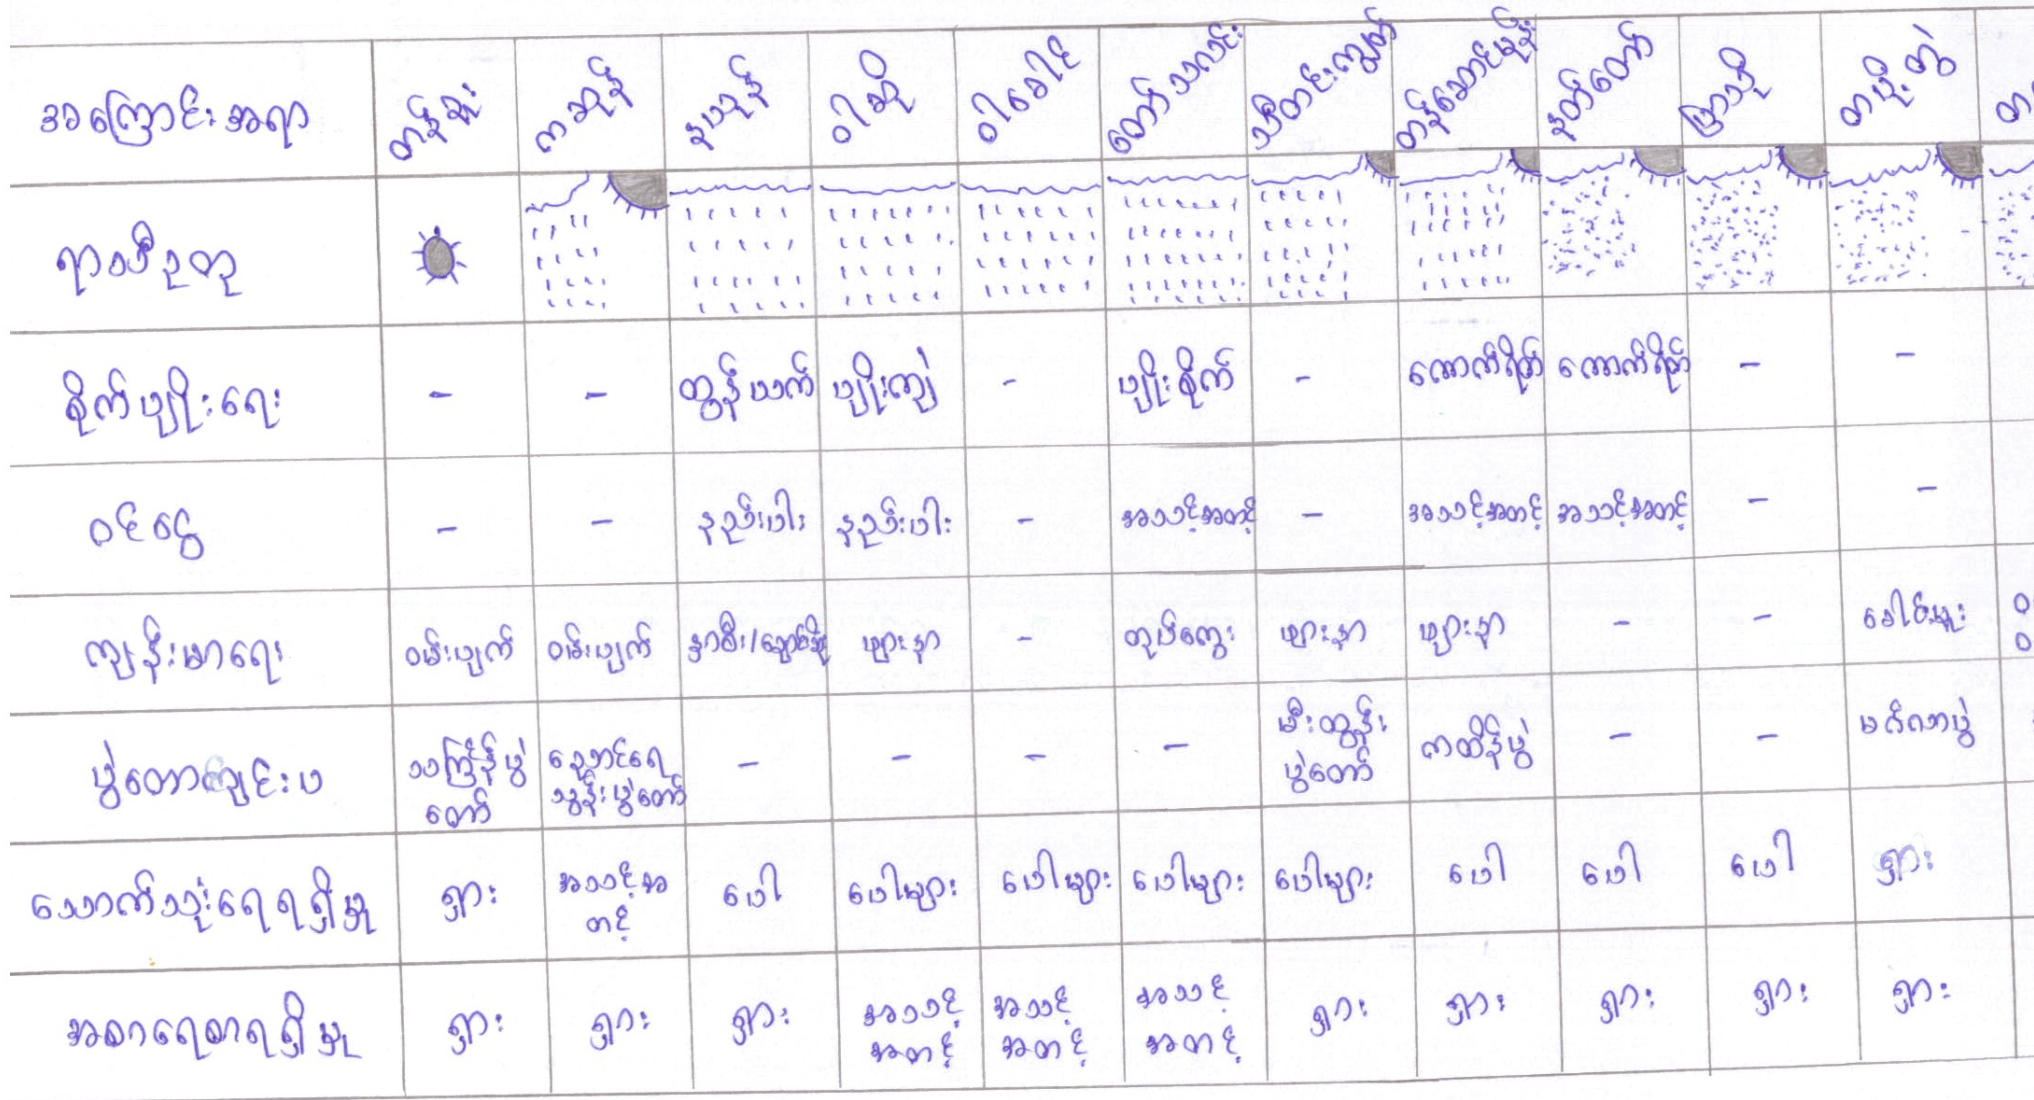 အကြောင်းအရာ တန်ခူး ကဆုန် နယုန် ဝါဆို ဝါခေါင် တော်သလင်း သီတင်းကျွတ် တန်ဆောင်မုန်း နတ်တော် ပြာသို တပို့တွဲ
ရာသီဥတု
စိုက်ပျိုးရေး - - ထွန်ယက် ပျိုးကျဲ - ပျိုးစိုက် - ကောက်ရိတ် ကောက်ရိတ် - -
ဝင်ငွေ - - နည်းပါး နည်းပါး - အသင့်အတင့် - အသင့်အတင့် အသင့်အတင့် - -
ကျန်းမာရေး ဝမ်းပျက် ဝမ်းပျက် နှာစီး/ချောင်းဆိုး ဖျားနာ - တုပ်ကွေး ဖျားနာ ဖျားနာ - - ခေါင်းမူး
ပွဲတောကျင်းပ သင်္ကြန်ပွဲ ညောင်ရေ - - - - မီးထွန်း ကထိန်ပွဲ - - မင်္ဂလာပွဲ
တော် သွန်းပွဲတော် ပွဲတော်
သောက်သုံးရေရရှိမှု ရှား အသင့်အ ပေါ ပေါများ ပေါများ ပေါများ ပေါများ ပေါ ပေါ ပေါ ရှား
တင့်
အစားရေစာရရှိမှု ရှား ရှား ရှား အသင့် အသင့် အသင့် ရှား ရှား ရှား ရှား ရှား
အတင့် အတင့် အတင့်